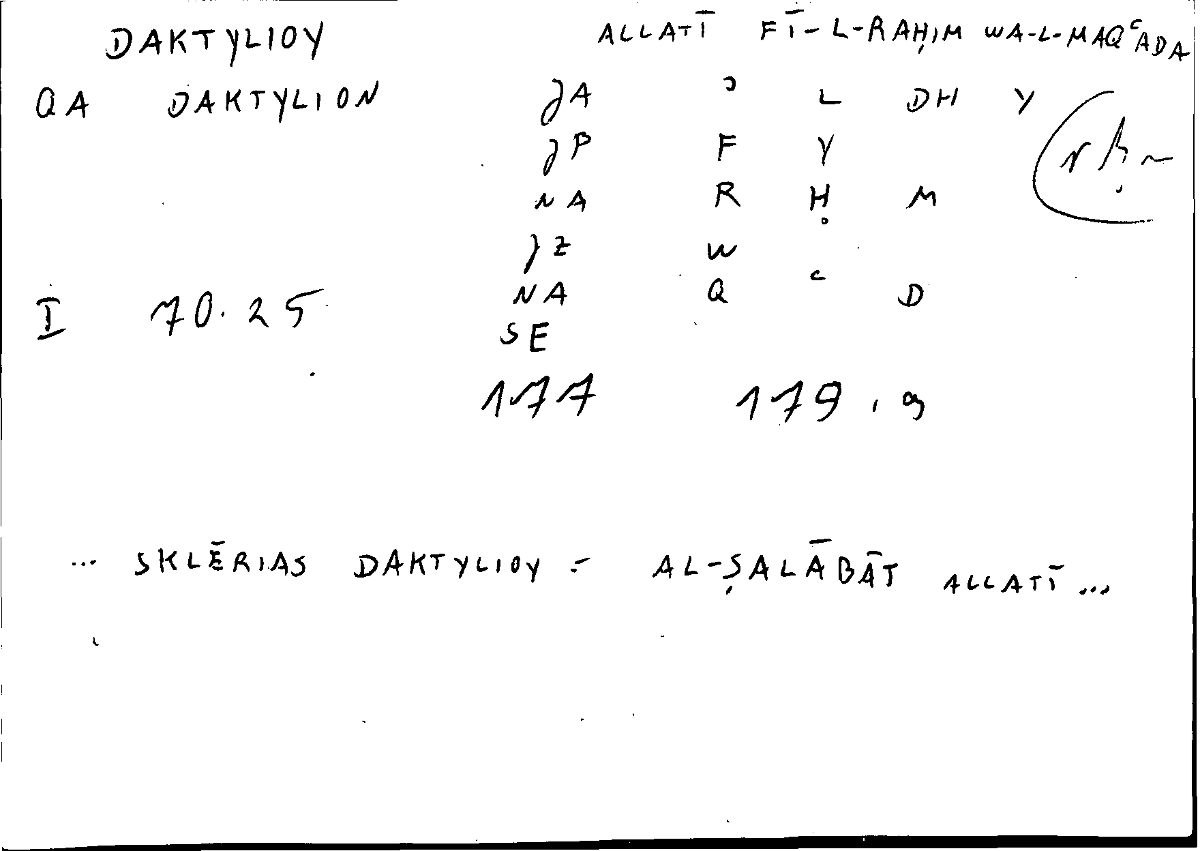 DAKTYLIOY ALLATĪ FĪ-L-RAḤIM WA-L-MAQʿADA
QA DAKTYLION JA ʾ L DH Y
JP F Y rḥm
NA R Ḥ M
JZ W
I 70.25 NA Q ʿ D
SE
177 179,9
... SKLĒRIAS DAKTYLIOY = AL-ṢALĀBĀT ALLATĪ ...